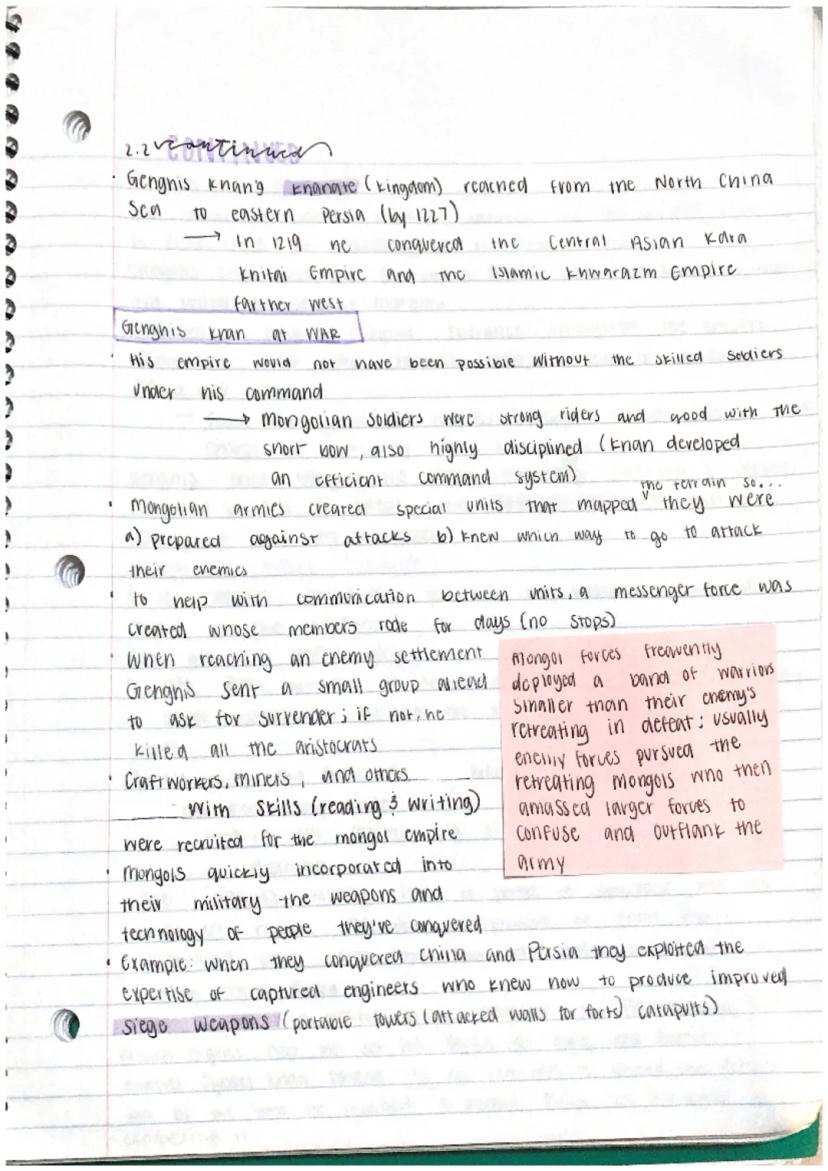 2.2 continued
CONTINUED
· Genghis Khan's Khanate (kingdom) reached from the North China
Sea to eastern Persia (by 1227)
→ In 1219 he conquered the Central Asian Kara
Khitai Empire and the Islamic Khwarazm Empire
farther west
Genghis Khan at WAR
· His empire would not have been possible without the skilled soldiers
under his command
→ Mongolian soldiers were strong riders and good with the
short bow, also highly disciplined (Khan developed
an efficient command system)
the terrain so...
· Mongolian armies created special units that mapped they were
a) prepared against attacks b) knew which way to go to attack
their enemies
· To help with communication between units, a messenger force was
created whose members rode for days (no stops)
· When reaching an enemy settlement
Genghis sent a small group ahead
to ask for surrender; if not, he
killed all the aristocrats
· Craftworkers, miners, and others
with skills (reading & writing)
were recruited for the mongol empire
· Mongols quickly incorporated into
their military the weapons and
technology of people they've conquered
· Example: when they conquered China and Persia they exploited the
expertise of captured engineers who knew how to produce improved
siege weapons (portable towers (attacked walls for forts) catapults)
Mongol forces frequently
deployed a band of warriors
smaller than their enemy's
retreating in defeat; usually
enemy forces pursued the
retreating Mongols who then
amassed larger forces to
confuse and outflank the
army